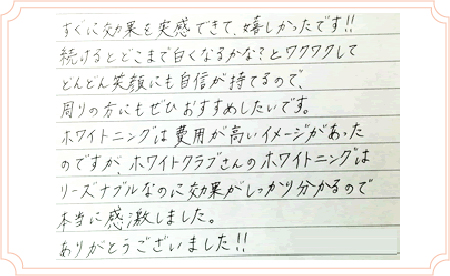 すぐに効果を実感できて、嬉しかったです!!
続けるとどこまで白くなるかな?とワクワクして
どんどん笑顔にも自信が持てるので、
周りの方にもぜひおすすめしたいです。
ホワイトニングは費用が高いイメージがあった
のですが、ホワイトクラブさんのホワイトニングは
リーズナブルなのに効果がしっかり分かるので
本当に感激しました。
ありがとうございました!!